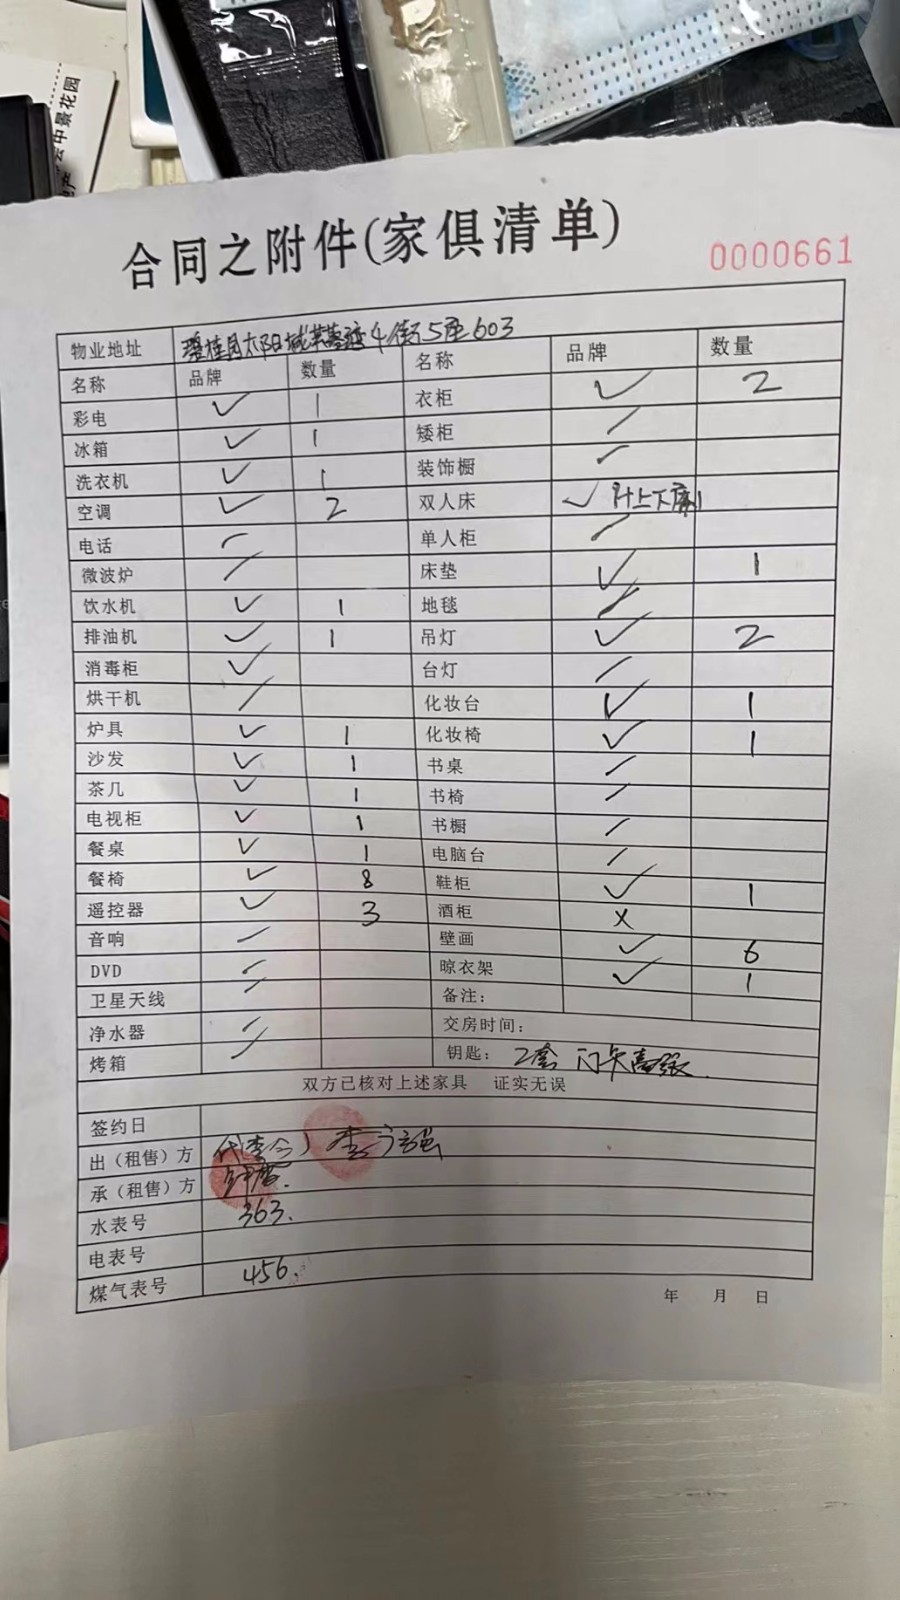 中景花园
合同之附件(家俱清单)
0000661
物业地址 碧桂园太阳城芙蓉 4街5座603
名称 品牌 数量 名称 品牌 数量
彩电 ✓ 1 衣柜 ✓ 2
冰箱 ✓ 1 矮柜 /
洗衣机 ✓ 1 装饰橱 /
空调 ✓ 2 双人床 ✓ 上下床1
电话 / 单人柜 /
微波炉 / 床垫 ✓ 1
饮水机 ✓ 1 地毯 /
排油机 ✓ 1 吊灯 ✓ 2
消毒柜 ✓ 台灯 /
烘干机 / 化妆台 ✓ 1
炉具 ✓ 1 化妆椅 ✓ 1
沙发 ✓ 1 书桌 /
茶几 ✓ 1 书椅 /
电视柜 ✓ 1 书橱 /
餐桌 ✓ 1 电脑台 /
餐椅 ✓ 8 鞋柜 ✓ 1
遥控器 ✓ 3 酒柜 x
音响 / 壁画 ✓ 6
DVD / 晾衣架 ✓ 1
卫星天线 / 备注:
净水器 / 交房时间:
烤箱 / 钥匙: 2套
双方已核对上述家具 证实无误
签约日
出（租售）方 李
承（租售）方
水表号 363.
电表号
煤气表号 456.
年 月 日